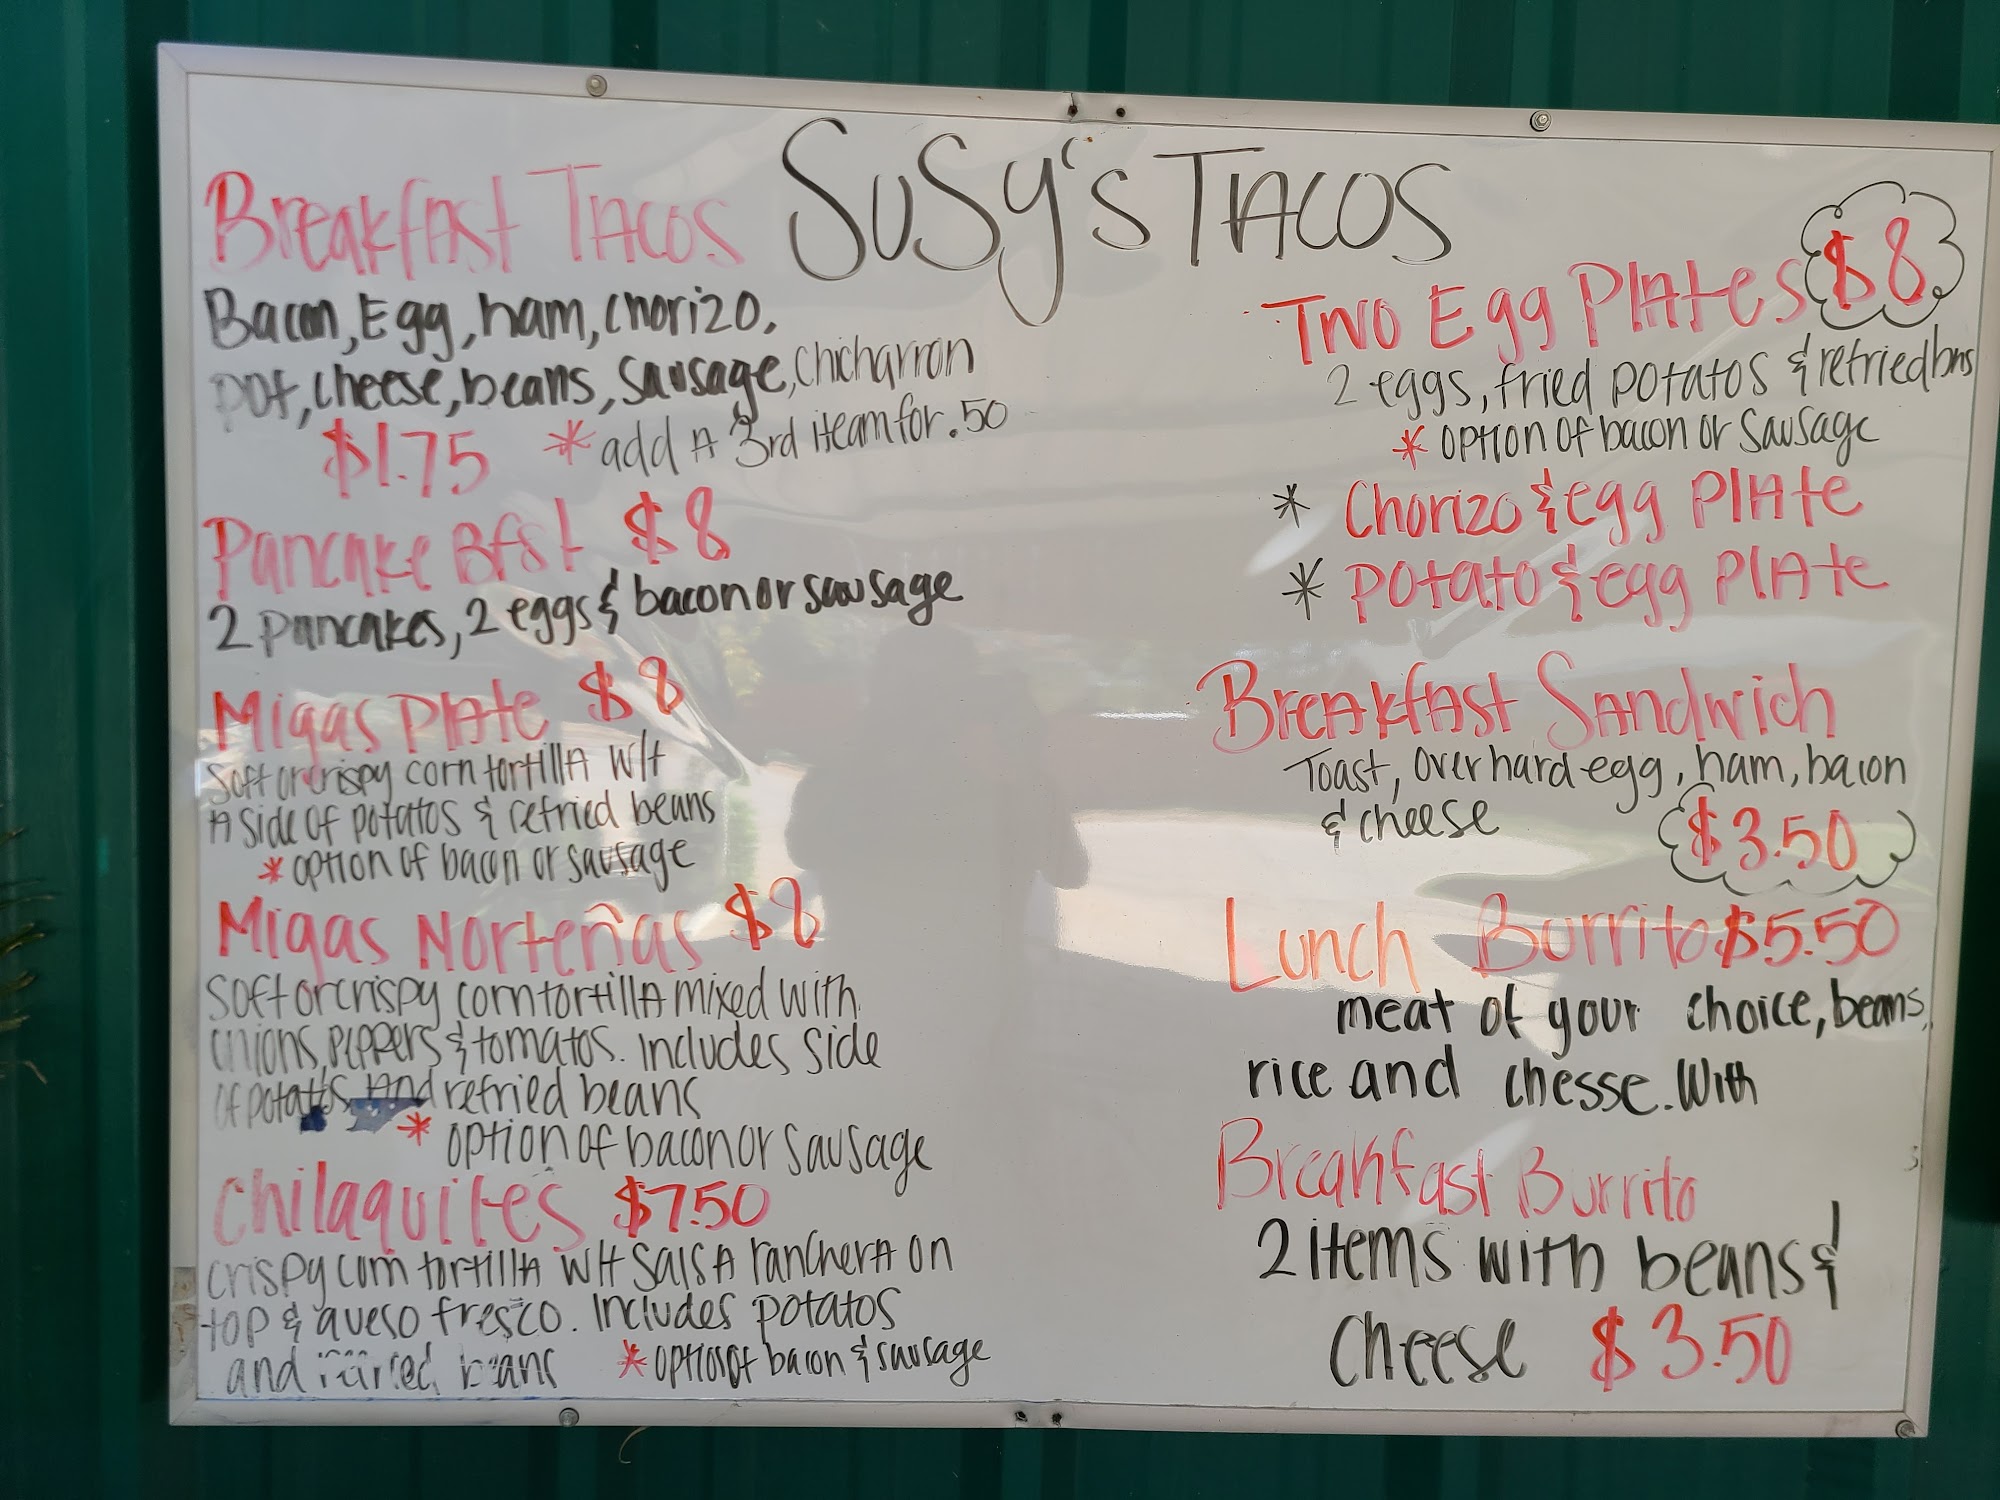 SuSy's TACOS
Breakfast TACOS
Bacon, Egg, ham, chorizo,
pot, cheese, beans, sausage, chicharron
$1.75 * add A 3rd iteam for .50
Pancake Bfst $8
2 pancakes, 2 eggs & bacon or sausage
Migas Plate $8
soft or crispy corn tortilla w/t
A side of potatos & refried beans
* option of bacon or sausage
Migas Norteñas $8
soft or crispy corn tortilla mixed with
onions, peppers & tomatos. includes side
of potatos and refried beans
* option of bacon or sausage
Chilaquiles $7.50
crispy corn tortilla w/t salsa ranchera on
top & queso fresco. includes potatos
and refried beans * option of bacon & sausage
Two Egg Plates $8
2 eggs, fried potatos & refried bns
* option of bacon or sausage
* Chorizo & egg Plate
* Potato & egg Plate
Breakfast Sandwich
Toast, over hard egg, ham, bacon
& cheese $3.50
Lunch Burrito $5.50
meat of your choice, beans,
rice and chesse. With
Breakfast Burrito
2 items with beans &
cheese $3.50